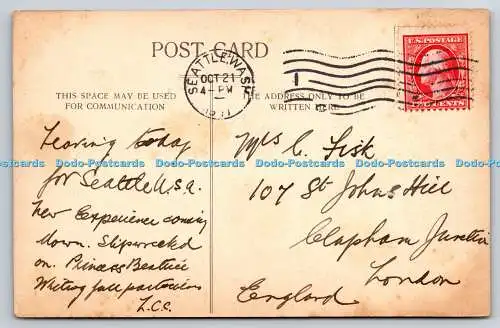 POST CARD
THIS SPACE MAY BE USED
FOR COMMUNICATION
THE ADDRESS ONLY TO BE
WRITTEN HERE
SEATTLE, WASH
OCT 21
4-PM
1911
U.S. POSTAGE
CENTS
Leaving today
for Seattle U.S.A.
New Experience coming
down. Shipwrecked
on Princess Beatrice
Writing full particulars
L.C.C.
Mrs C. Fisk
107 St Johns Hill
Clapham Junction
London
England
Dodo-Postcards Dodo-Postcards Dodo-Postcards Dodo-Postcards